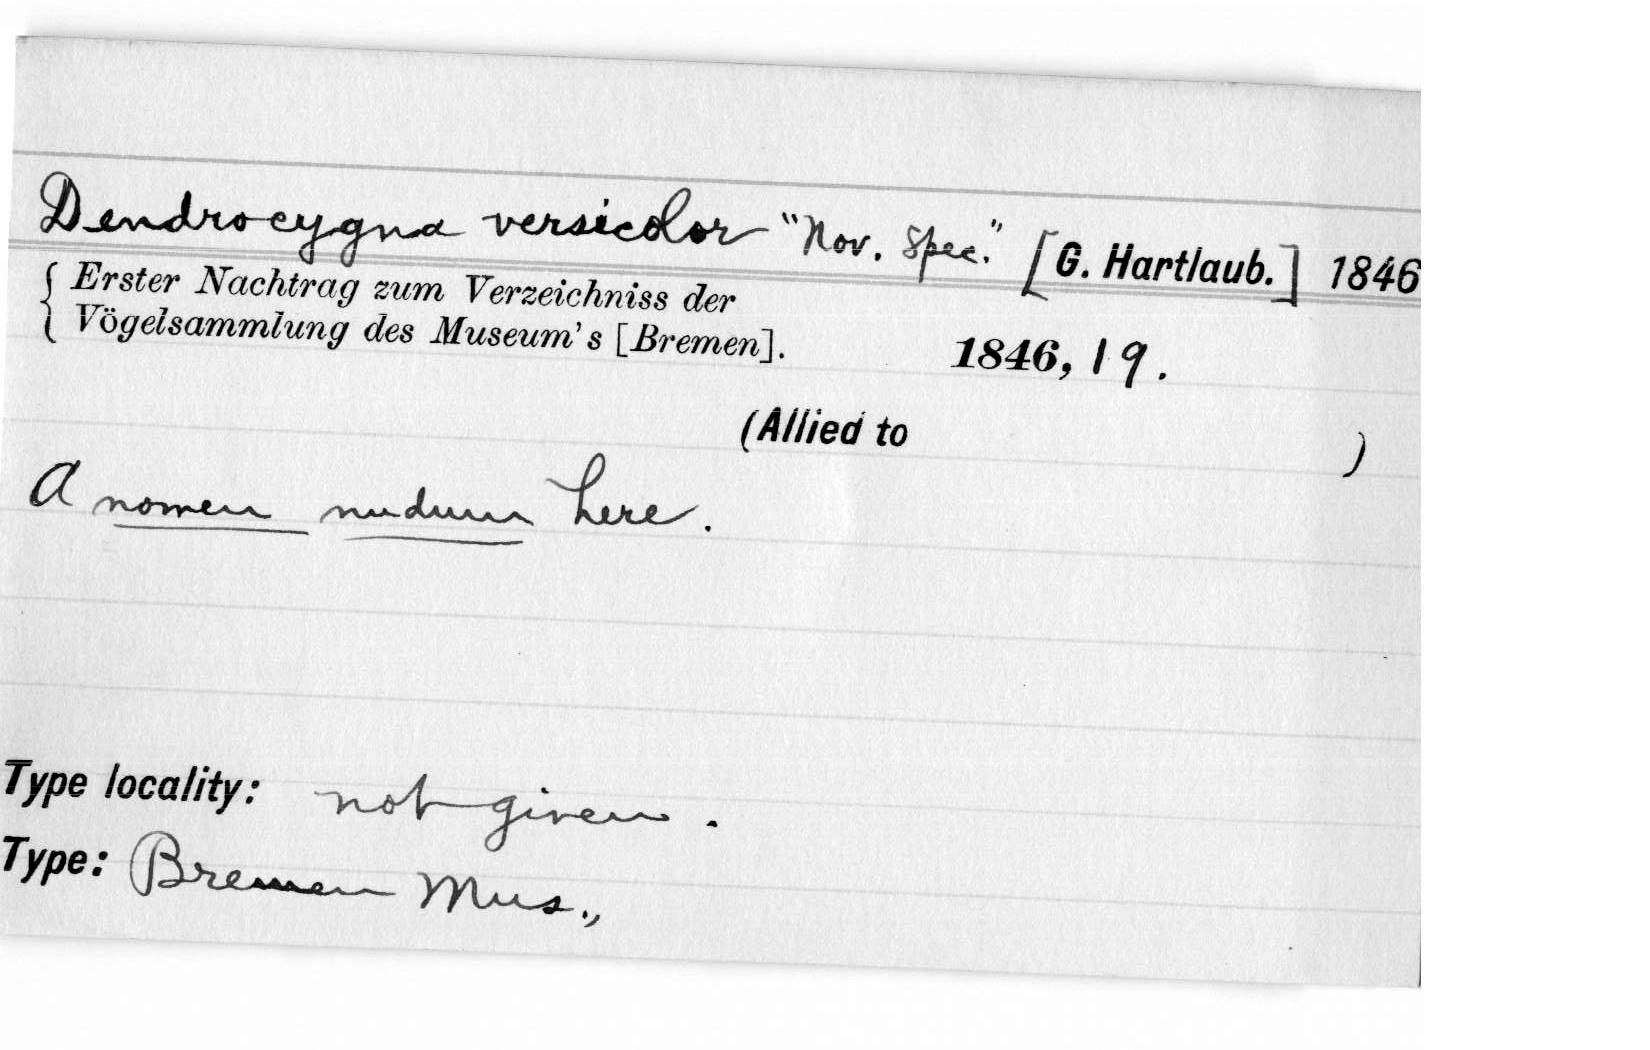 Dendrocygna versicolor "Nov. Spec." [G. Hartlaub.] 1846
{ Erster Nachtrag zum Verzeichniss der
Vögelsammlung des Museum's [Bremen]. 1846, 19.
(Allied to )
A nomen nudum here.
Type locality: not given.
Type: Bremen Mus.,